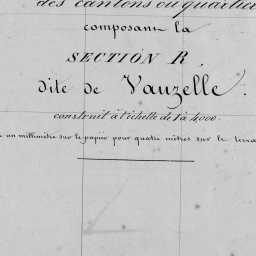 des cantons ou quartie
composant la
SECTION R,
dite de Vauzelle.
construit à l'échelle de 1 à 4000.
un millimètre sur le papier pour quatre mètres sur le terra